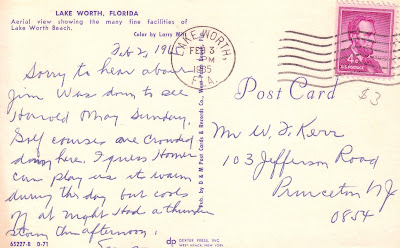 LAKE WORTH, FLORIDA
Aerial view showing the many fine facilities of
Lake Worth Beach.
Color by Larry Witt
Feb 2, 1965
Sorry to hear about
Jim Was down to see
Harold May Sunday.
Golf courses are crowded
down here. I guess Homer
can play us its warm
during the day but cools
off at night Had a thunder
storm this afternoon.
65227-B D-71
DEXTER PRESS, INC.
WEST NYACK, NEW YORK
dp
Pub. by D & M Post Cards & Records Co.,
LAKE WORTH,
FEB 3
PM
1965
FLA.
4¢
U.S. POSTAGE
Post Card
$3
Mr W. F. Kerr
103 Jefferson Road
Princeton NJ
0854